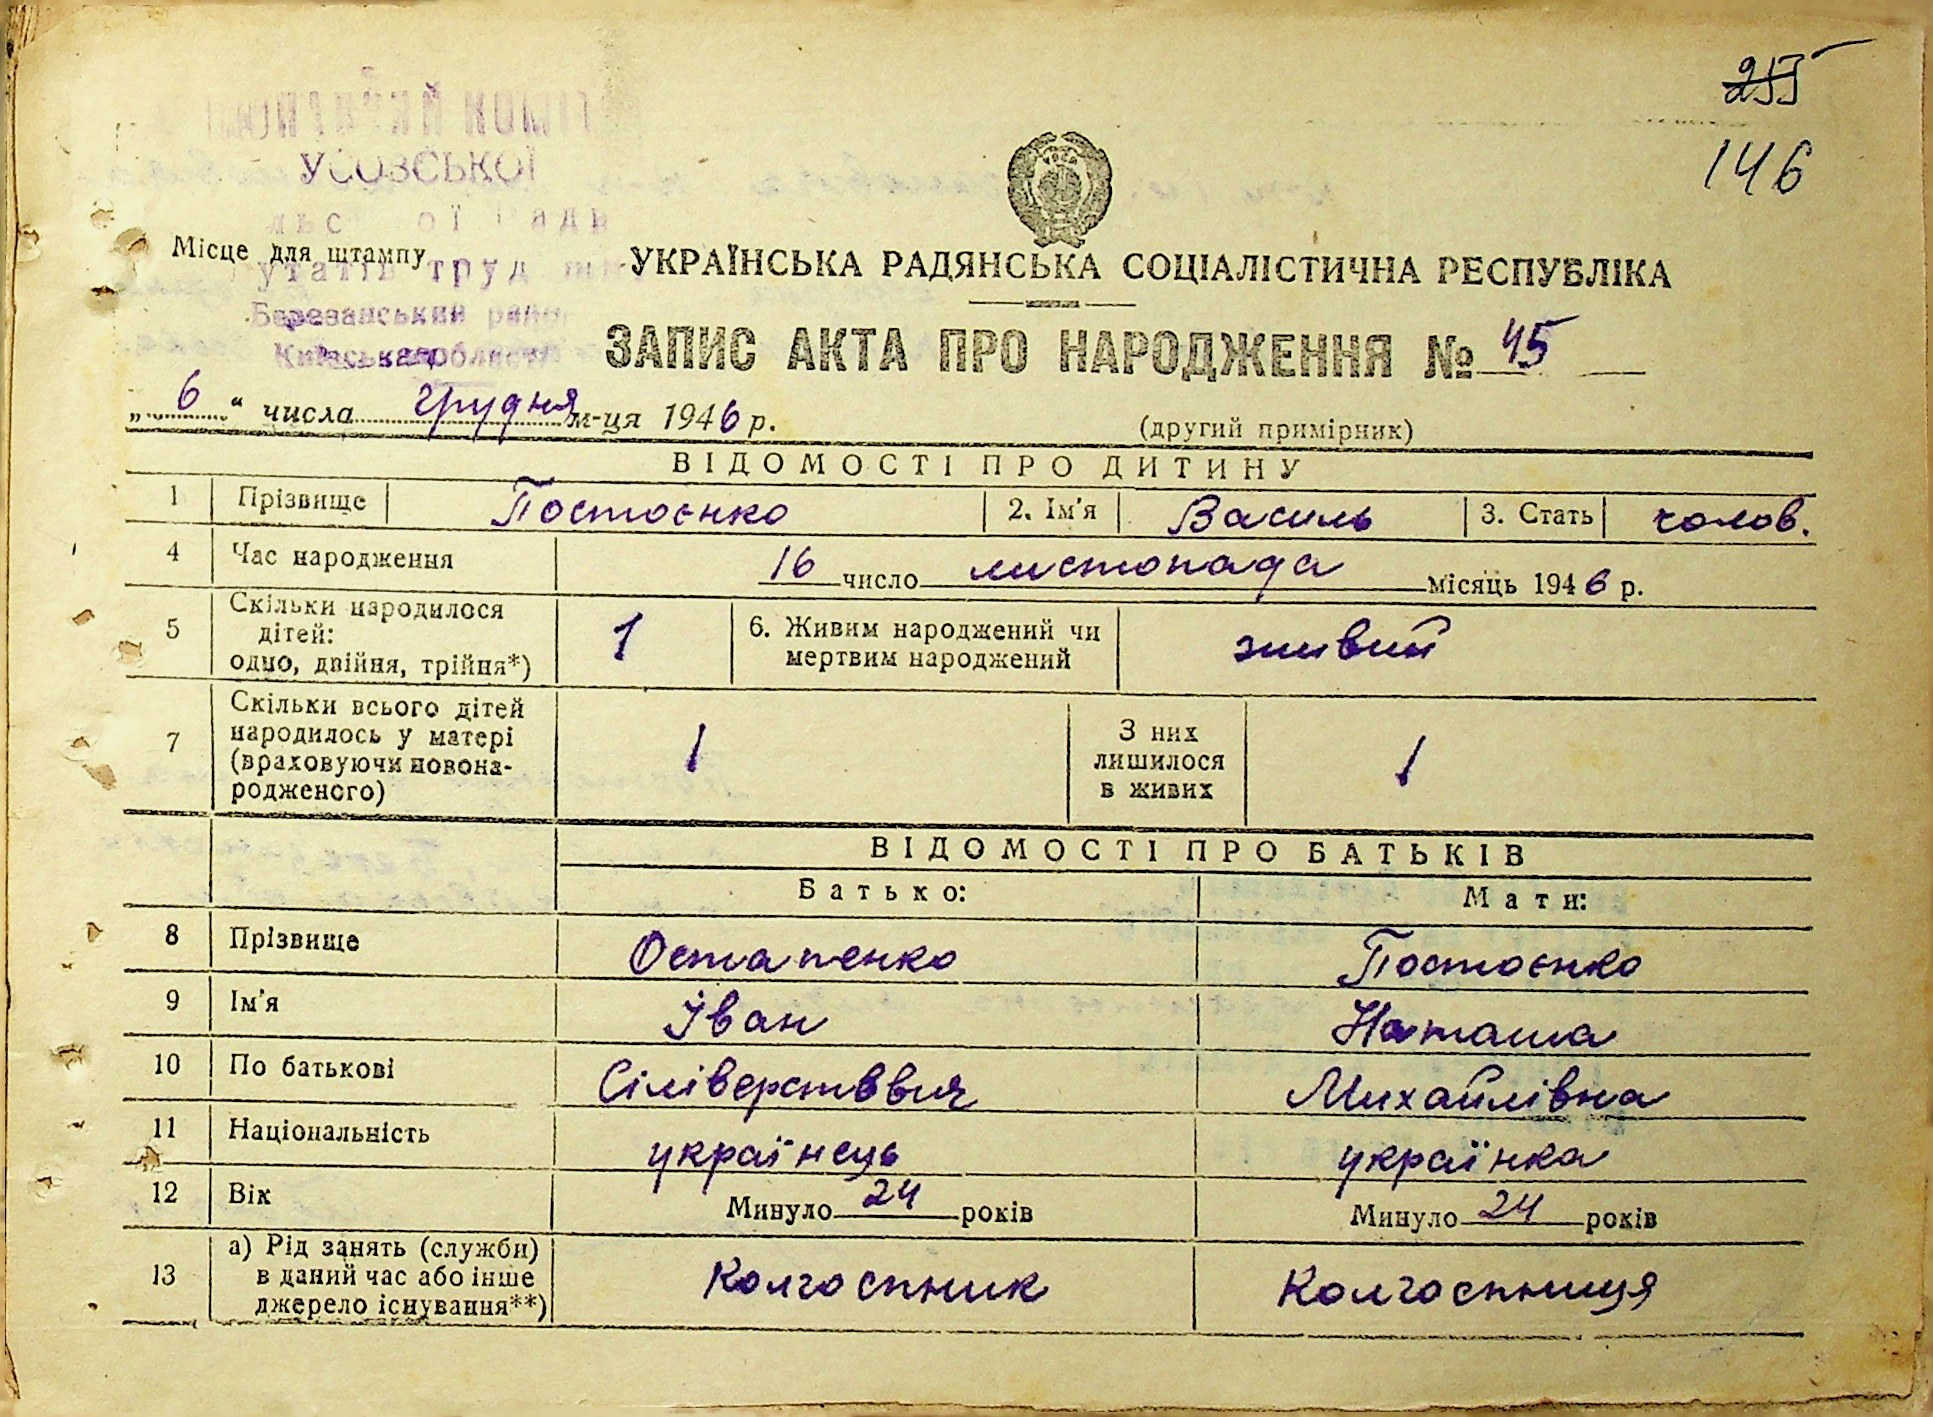 255
146
УСОВСЬКОЇ
Місце для штампу
Березанський
УКРАЇНСЬКА РАДЯНСЬКА СОЦІАЛІСТИЧНА РЕСПУБЛІКА
ЗАПИС АКТА ПРО НАРОДЖЕННЯ № 45
„6“ числа грудня м-ця 1946 р.
(другий примірник)
ВІДОМОСТІ ПРО ДИТИНУ
1 Прізвище Постоєнко 2. Ім'я Василь 3. Стать чолов.
4 Час народження 16 число листопада місяць 1946 р.
5 Скільки народилося
дітей:
одно, двійня, трійня*)
1
6. Живим народжений чи
мертвим народжений
живий
7 Скільки всього дітей
народилось у матері
(враховуючи новона-
родженого)
1
З них
лишилося
в живих
1
ВІДОМОСТІ ПРО БАТЬКІВ
Батько: Мати:
8 Прізвище Остапенко Постоєнко
9 Ім'я Іван Наташа
10 По батькові Сіліверстввич Михайлівна
11 Національність українець українка
12 Вік Минуло 24 років Минуло 24 років
13 а) Рід занять (служби)
в даний час або інше
джерело існування**)
Колгоспник Колгоспниця